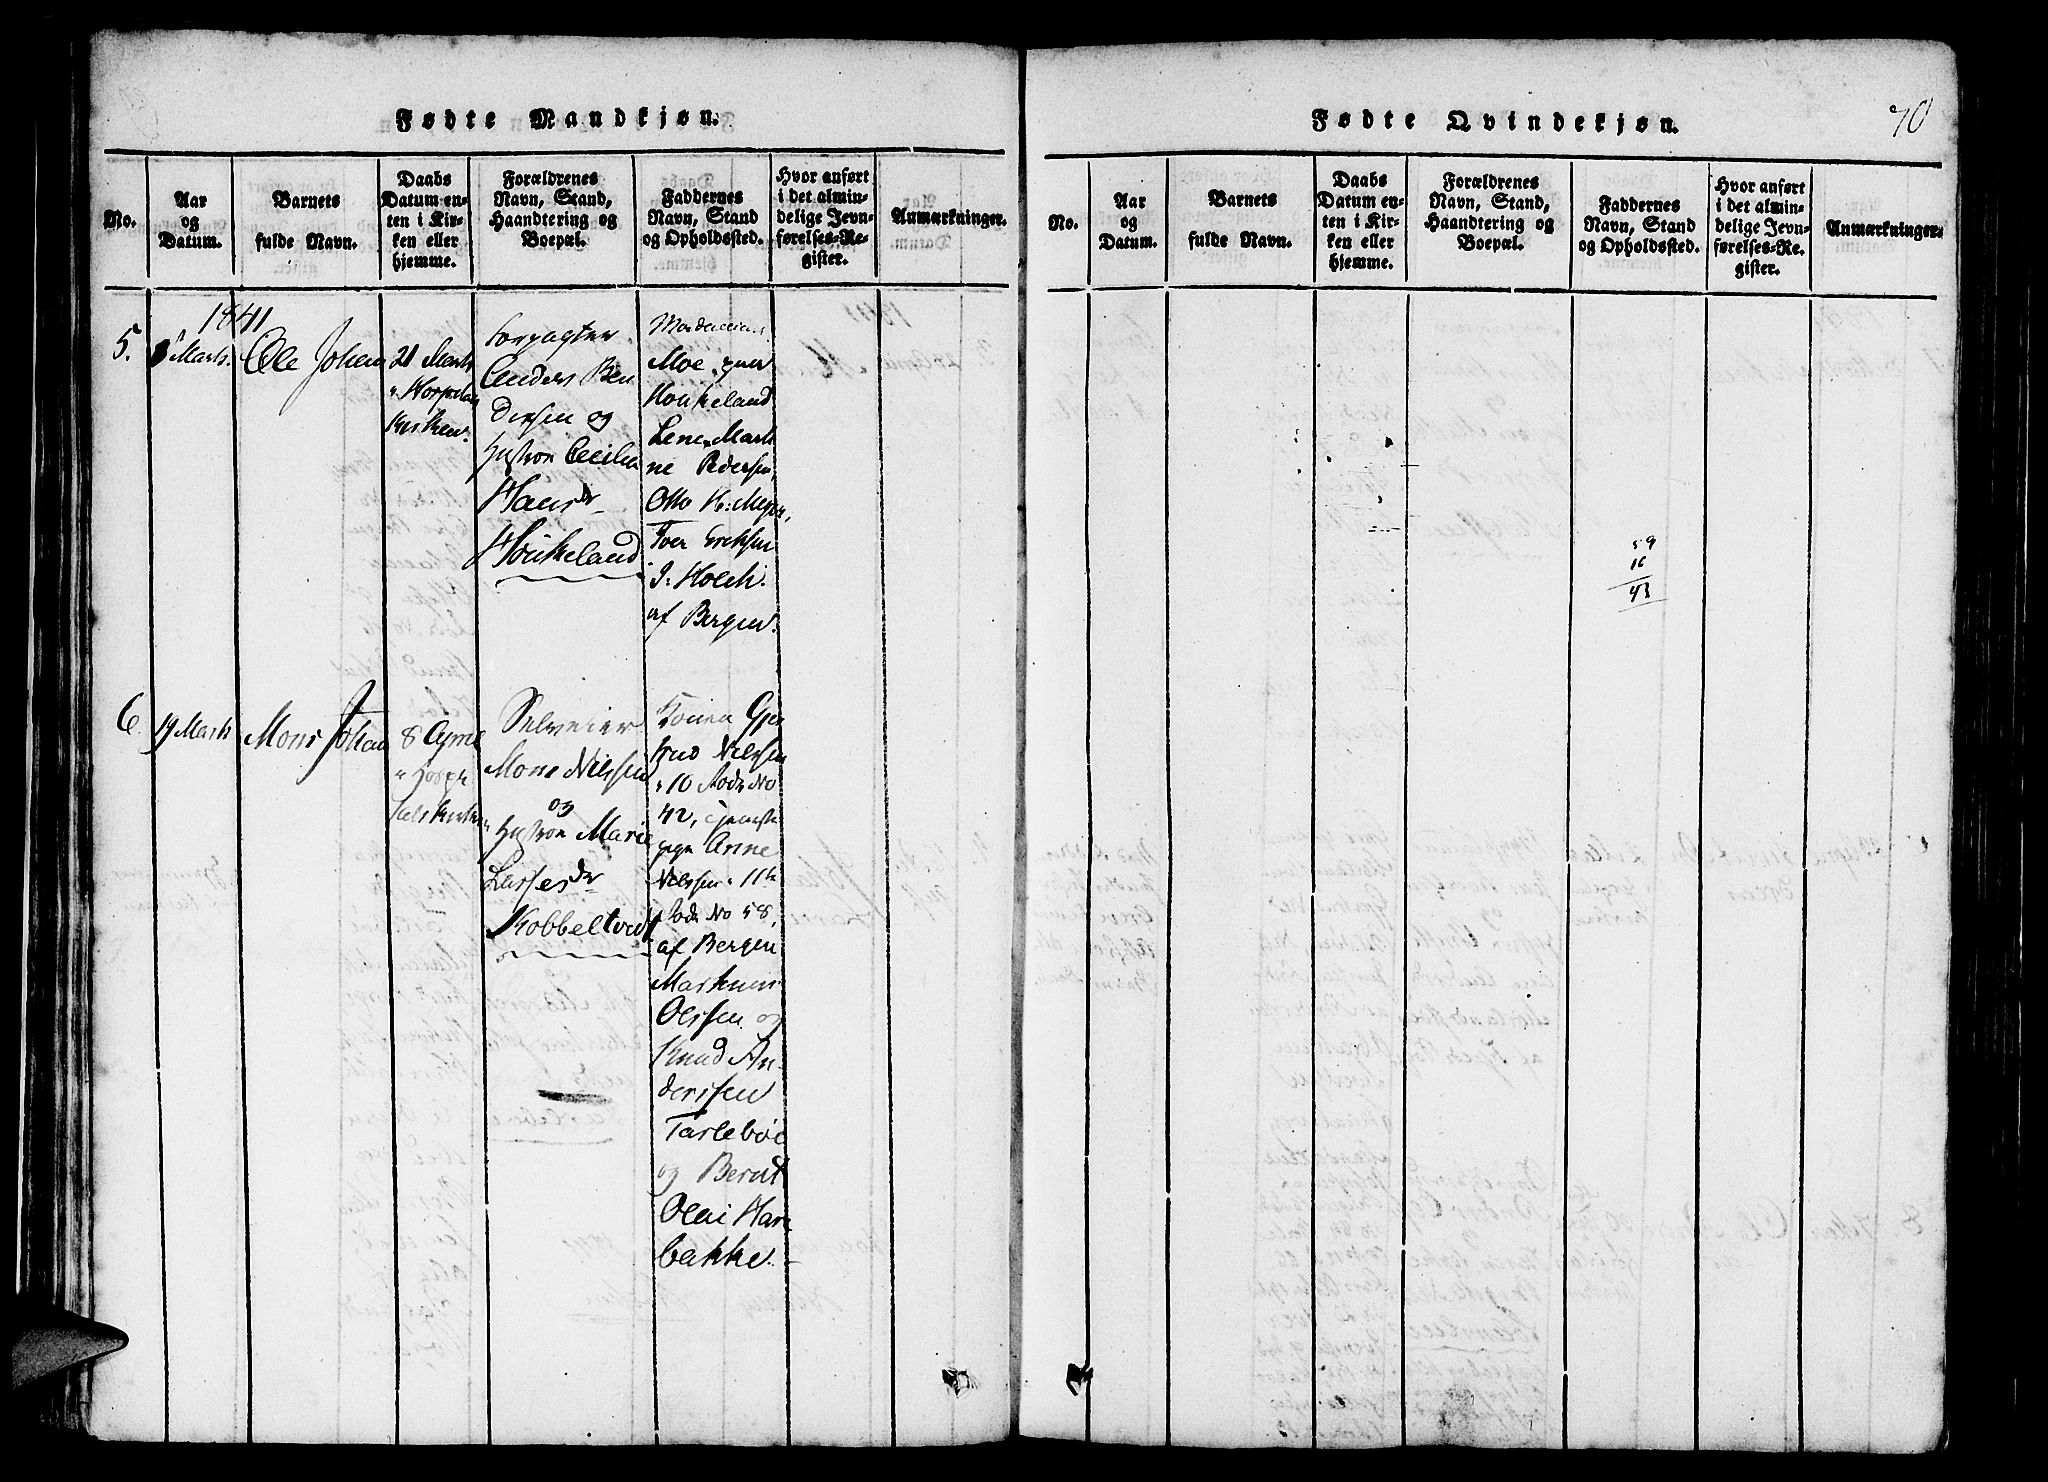 Fødte Mandkjøn.
No.
Aar
og
Datum.
Barnets
fulde Navn.
Daabs
Datum en-
ten i Kir-
ken eller
hjemme.
Forældrenes
Navn, Stand,
Haandtering og
Boepæl.
Faddernes
Navn, Stand
og Opholdssted.
Hvor anført
i det almin-
delige Jevn-
førelses-Re-
gister.
Anmærkninger.
1841
5.
Marts.
Ole Johan
21 Marts
Kirken.
Forpagter
Anders Ben
dixen og
Hustroe Cecilia
Hansdr
Houkeland
Madame
Moe, paa
Houkeland
Lene Marti
ne Pedersen,
Otto H: Meyer,
Iver Eriksen
J: Holck.
af Bergen.
6.
19 Marts
Mons Johan
8 April
i Hospi
tals Kirken
Selveier
Mons Nilssen
og
Hustroe Marie
Lassesdr
Kobbeltvedt
Kone Gjer
trud Nilssen
i 10 Rode No
42, Tjeneste
pige Anne
Nilssen i 11te
Rode No 58
af Bergen
Markus
Olssen og
Knud An-
derssen
Tarlebøe
og Bernt
Olai Har
bakke.
Fødte Qvindekjøn.
70
No.
Aar
og
Datum.
Barnets
fulde Navn.
Daabs
Datum en-
ten i Kir-
ken eller
hjemme.
Forældrenes
Navn, Stand,
Haandtering og
Boepæl.
Faddernes
Navn, Stand
og Opholdssted.
Hvor anført
i det almin-
delige Jevn-
førelses-Re-
gister.
Anmærkninger.
59
16
43